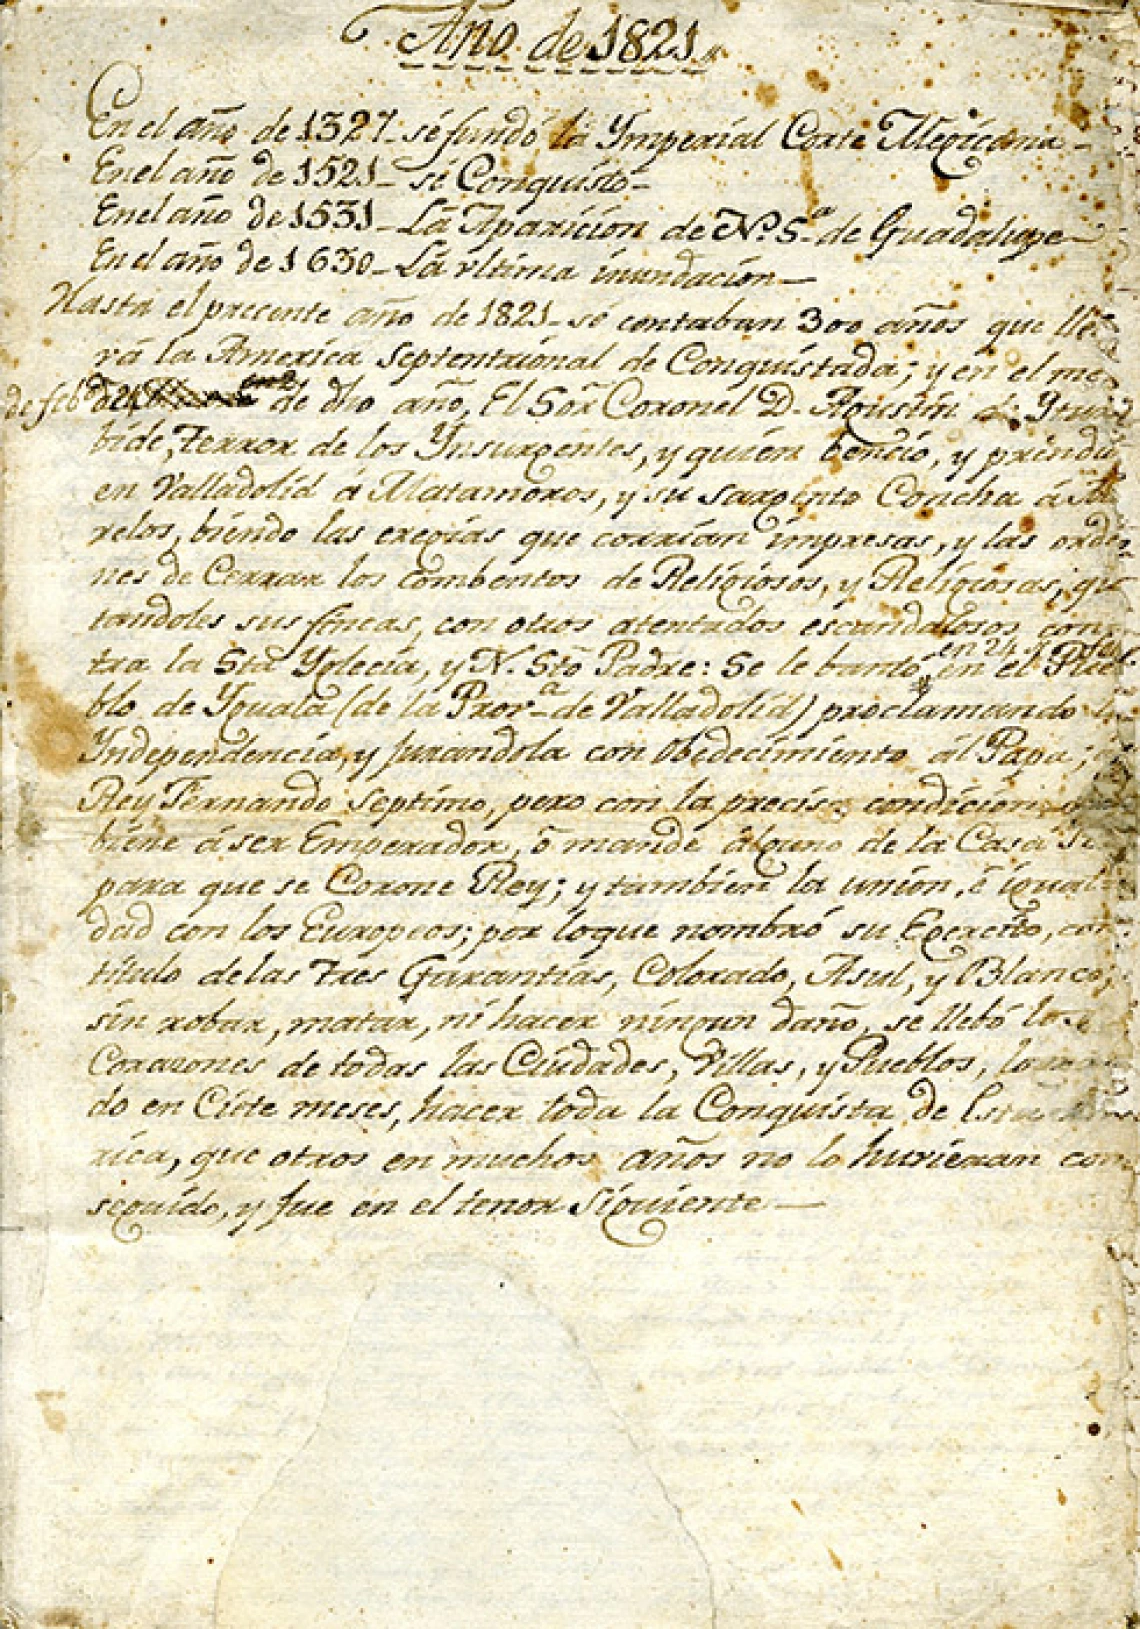 Año de 1821.
En el año de 1327. se fundó la Ymperial Corte Mexicana
En el año de 1521 - se Conquistó -
En el año de 1531 - La Aparicion de Nª Sª de Guadalupe
En el año de 1630 - La última inundacion -
Hasta el precente año de 1821 - se contaban 300 años que lle-
va la America Septentrional de Conquistada; y en el me-
de febº de de dho año, El Sor Coronel D. Agustin de Ytur
bide, Terror de los Ynsurgentes, y quien benció, y prindió
en Valladolid á Matamoros, y su sargento Concha á Mo
relos, biendo las eregias que corrian impresas, y las orde-
nes de Cerrar los combentos de Religiosos, y Religiosas, qui
tandoles sus fincas, con otros atentados escandalosos con-
en 24
tra la Sta Yglecia, y N. Sto Padre: Se le bantó, en el Pue
blo de Yguala (de la Provª de Valladolid) proclamando la
Yndependencia, y jurandola con obedecimiento ál Papa; á
Rey Fernando Septimo, pero con la precisa condicion
biene á ser Emperador, ó mande álguno de la Casa
para que se Corone Rey; y tambien la union, é igual-
dad con los Europeos; por loque nombró su Egercito, con
titulo de las Tres Garantias, Colorado, Asul, y Blanco;
sin robar, matar, ni hacer ningun daño, se llebó los
Corazones de todas las Ciudades, Villas, y Pueblos, logran
do en Ciete meses, hacer toda la Conquista de Esta Amé
rica, que otros en muchos años no lo huvieran con
seguido, y fue en el tenor siguiente -